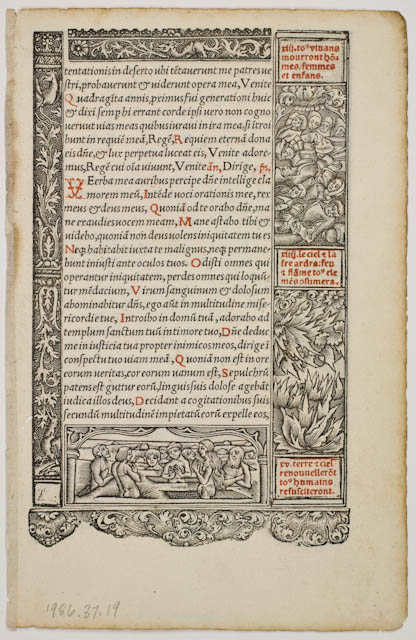 tentationis in deserto ubi tētauerunt me patres ve
stri, probauerunt & uiderunt opera mea, Venite
Quadragīta annis, pximus fui generationi huic
& dixi semp hi errant corde ipsi uero non cogno
uerunt uias meas quibus iuraui in ira mea, si ītroi
bunt in requiē meā, Regē, Requiem eternā dona
eis dñe, & lux perpetua luceat eis, Venite adore-
mus, Regē cui oīa uiuunt, Venite, añ, Dirige, ps,
Verba mea auribus percipe dñe intellige cla
morem meū, Intēde uoci orationis mee, rex
meus & deus meus, Quoniā ad te orabo dñe, ma
ne exaudies uocem meam, Mane astabo tibi &
uidebo, quoniā non deus uolens iniquitatem tu es
Neq habitabit iuxta te malignus, neq permane-
bunt iniusti ante oculos tuos. Odisti omnes qui
operantur iniquitatem, perdes omnes qui loquū-
tur mēdacium, Virum sanguinum & dolosum
abominabitur dñs, ego aūt in multitudine mise-
ricordie tue, Introibo in domū tuā, adorabo ad
templum sanctum tuū in timore tuo, Dñe deduc
me in iusticia tua propter inimicos meos, dirige ī
conspectu tuo uiam meā, Quoniā non est in ore
eorum veritas, cor eorum vanum est, Sepulchrū
patens est guttur eorū, linguis suis dolose agebāt
iudica illos deus, Decidant a cogitationibus suis
secundū multitudinē impietatū eorū expelle eos,
xiij. toꝰ viuans
mourront hō-
mes, femmes
et enfans.
xiiij. le ciel & la
t̄re ardra: feu
& flāme toꝰ ele
mēs ꝯsumera.
xv. terre & ciel
renouvellerōt
toꝰ humains
resusciteront.
1986.37.19